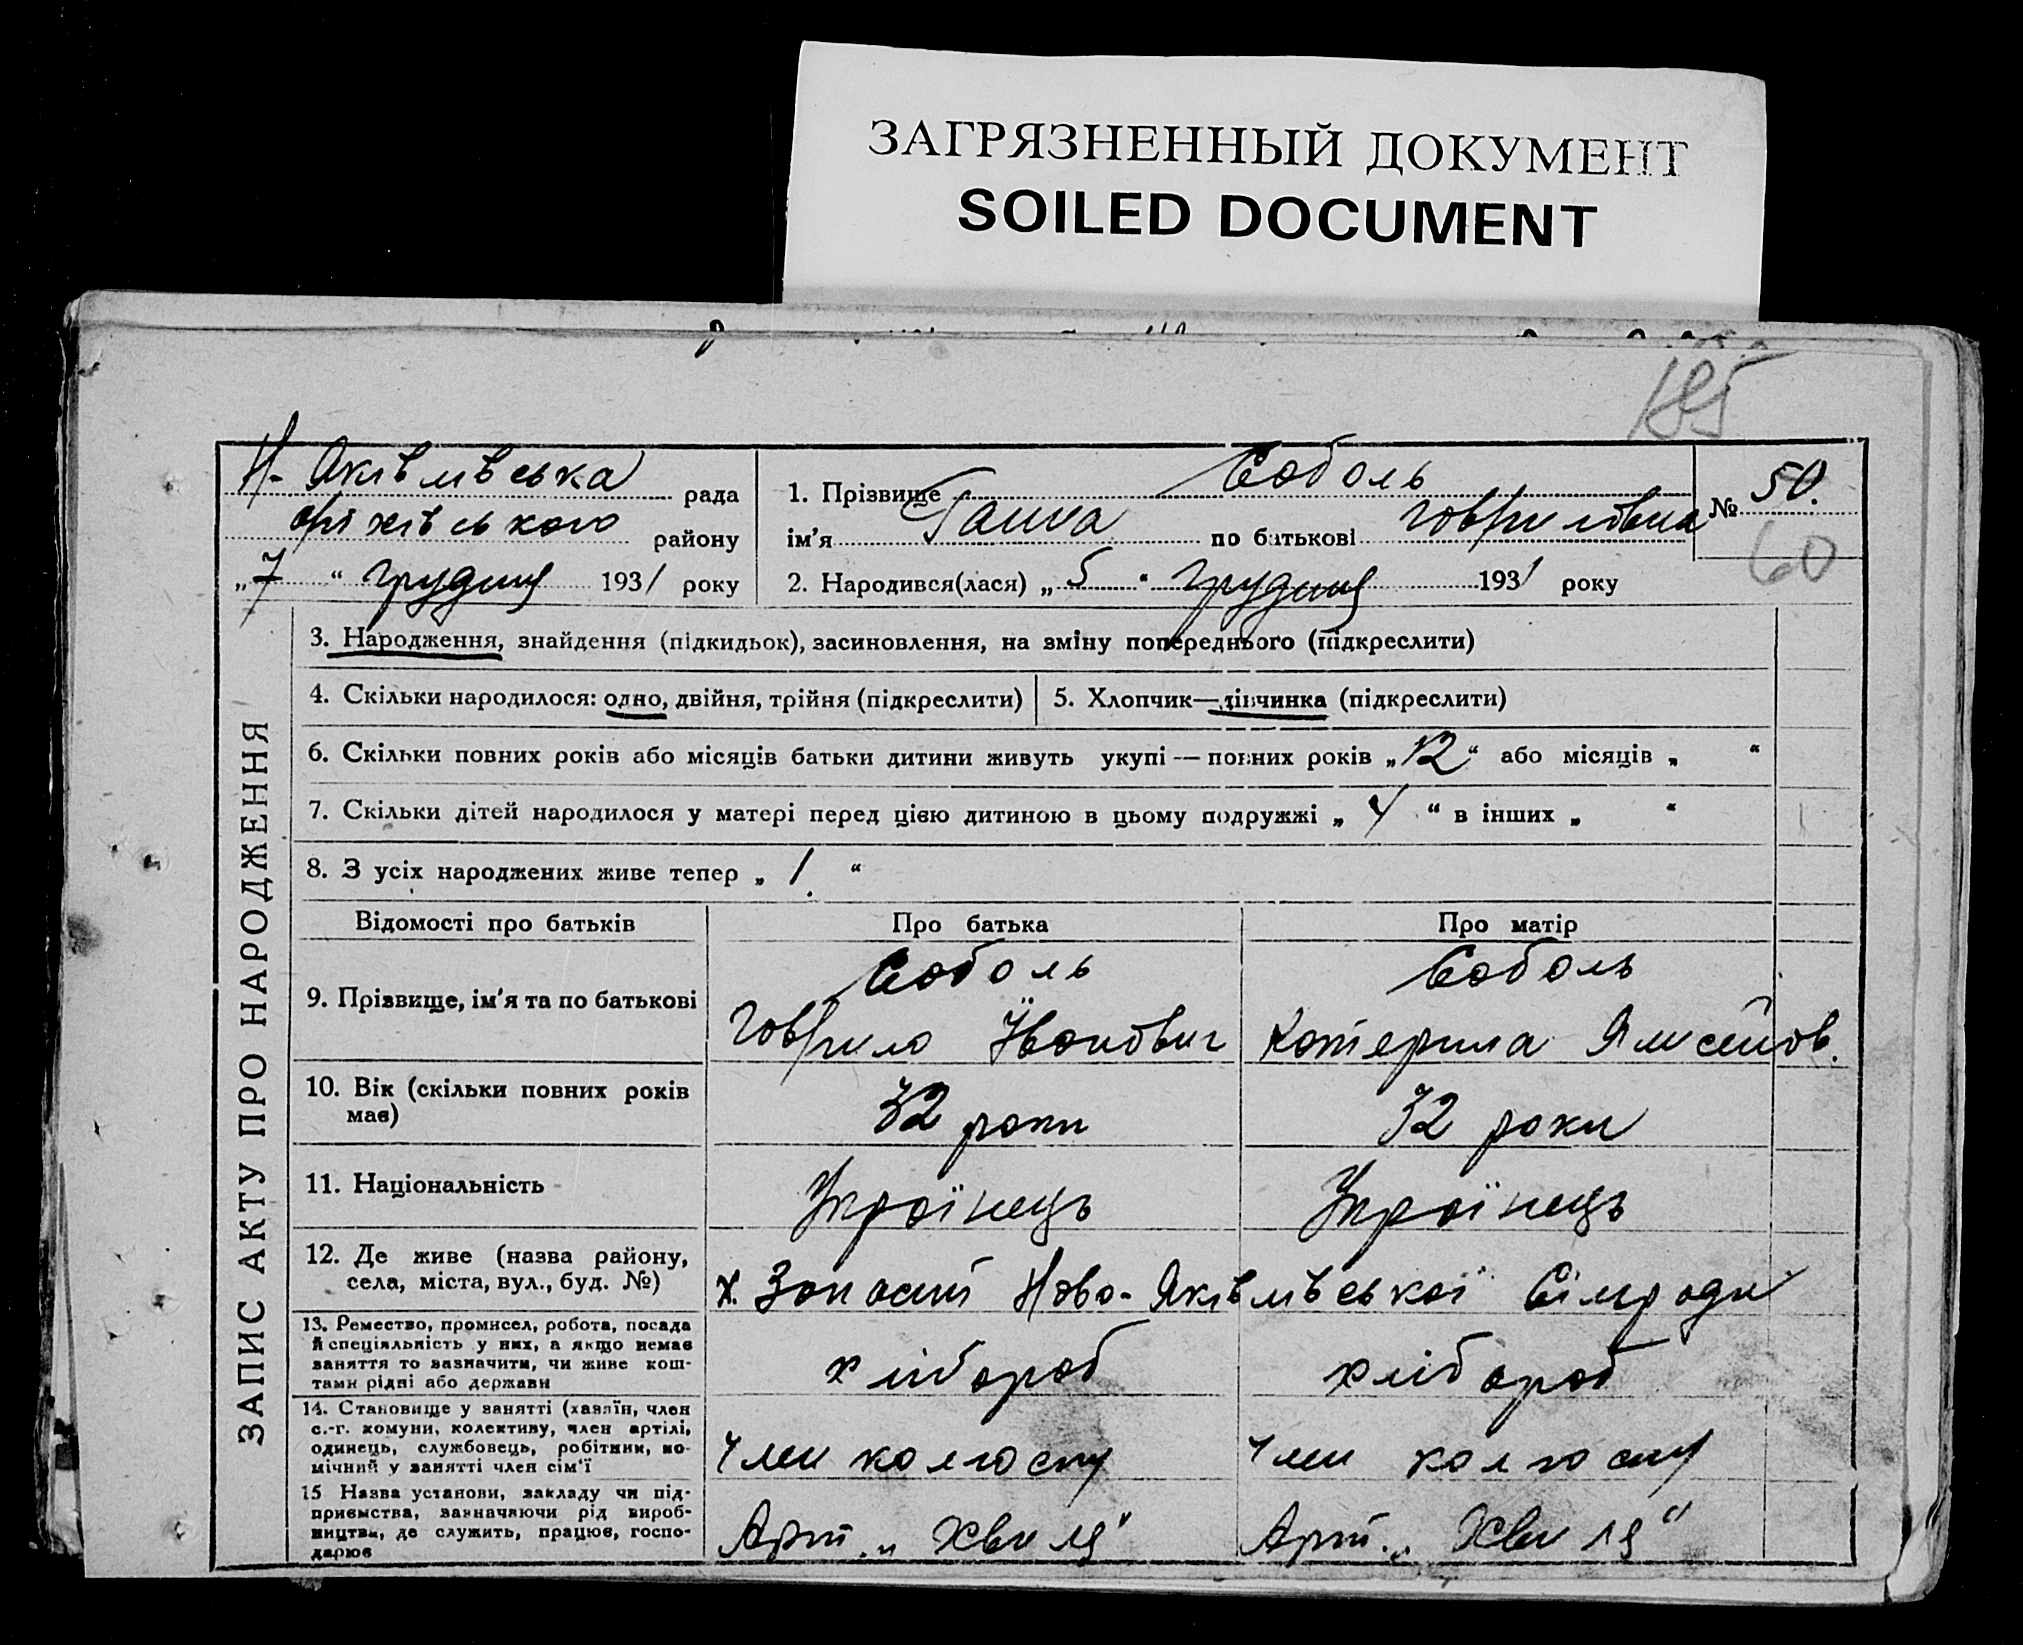 ЗАГРЯЗНЕННЫЙ ДОКУМЕНТ
SOILED DOCUMENT
185
Н-Яківлівська рада
оріхівського району
„7“ грудня 1931 року
1. Прізвище Соболь
ім'я Ганна по батькові Говрилівна
2. Народився(лася) „5“ грудня 1931 року
№ 50.
60
ЗАПИС АКТУ ПРО НАРОДЖЕННЯ
3. Народження, знайдення (підкидьок), засиновлення, на зміну попереднього (підкреслити)
4. Скільки народилося: одно, двійня, трійня (підкреслити)
5. Хлопчик—дівчинка (підкреслити)
6. Скільки повних років або місяців батьки дитини живуть укупі — повних років „12“ або місяців „ “
7. Скільки дітей народилося у матері перед цією дитиною в цьому подружжі „4“ в інших „ “
8. З усіх народжених живе тепер „1.“
Відомості про батьків
Про батька
Про матір
9. Прізвище, ім'я та по батькові
Соболь
Говрило Івонович
Соболь
Котерина
10. Вік (скільки повних років
має)
32 роки
32 роки
11. Національність
Українець
Українець
12. Де живе (назва району,
села, міста, вул., буд. №)
х. Запасний Ново-Яківлівської Сілради
13. Ремество, промисел, робота, посада
й спеціяльність у них, а якщо немає
заняття то зазначити, чи живе кош-
тами рідні або держави
хлібороб
хлібороб
14. Становище у занятті (хазяїн, член
с.-г. комуни, колективу, член артілі,
одинець, службовець, робітник, по-
мічний у занятті член сім'ї
член колгоспу
член колгоспу
15 Назва установи, закладу чи під-
приємства, зазначаючи рід вироб-
ництва, де служить, працює, госпо-
дарює
Арт. „Хвиля"
Арт. „Хвиля"